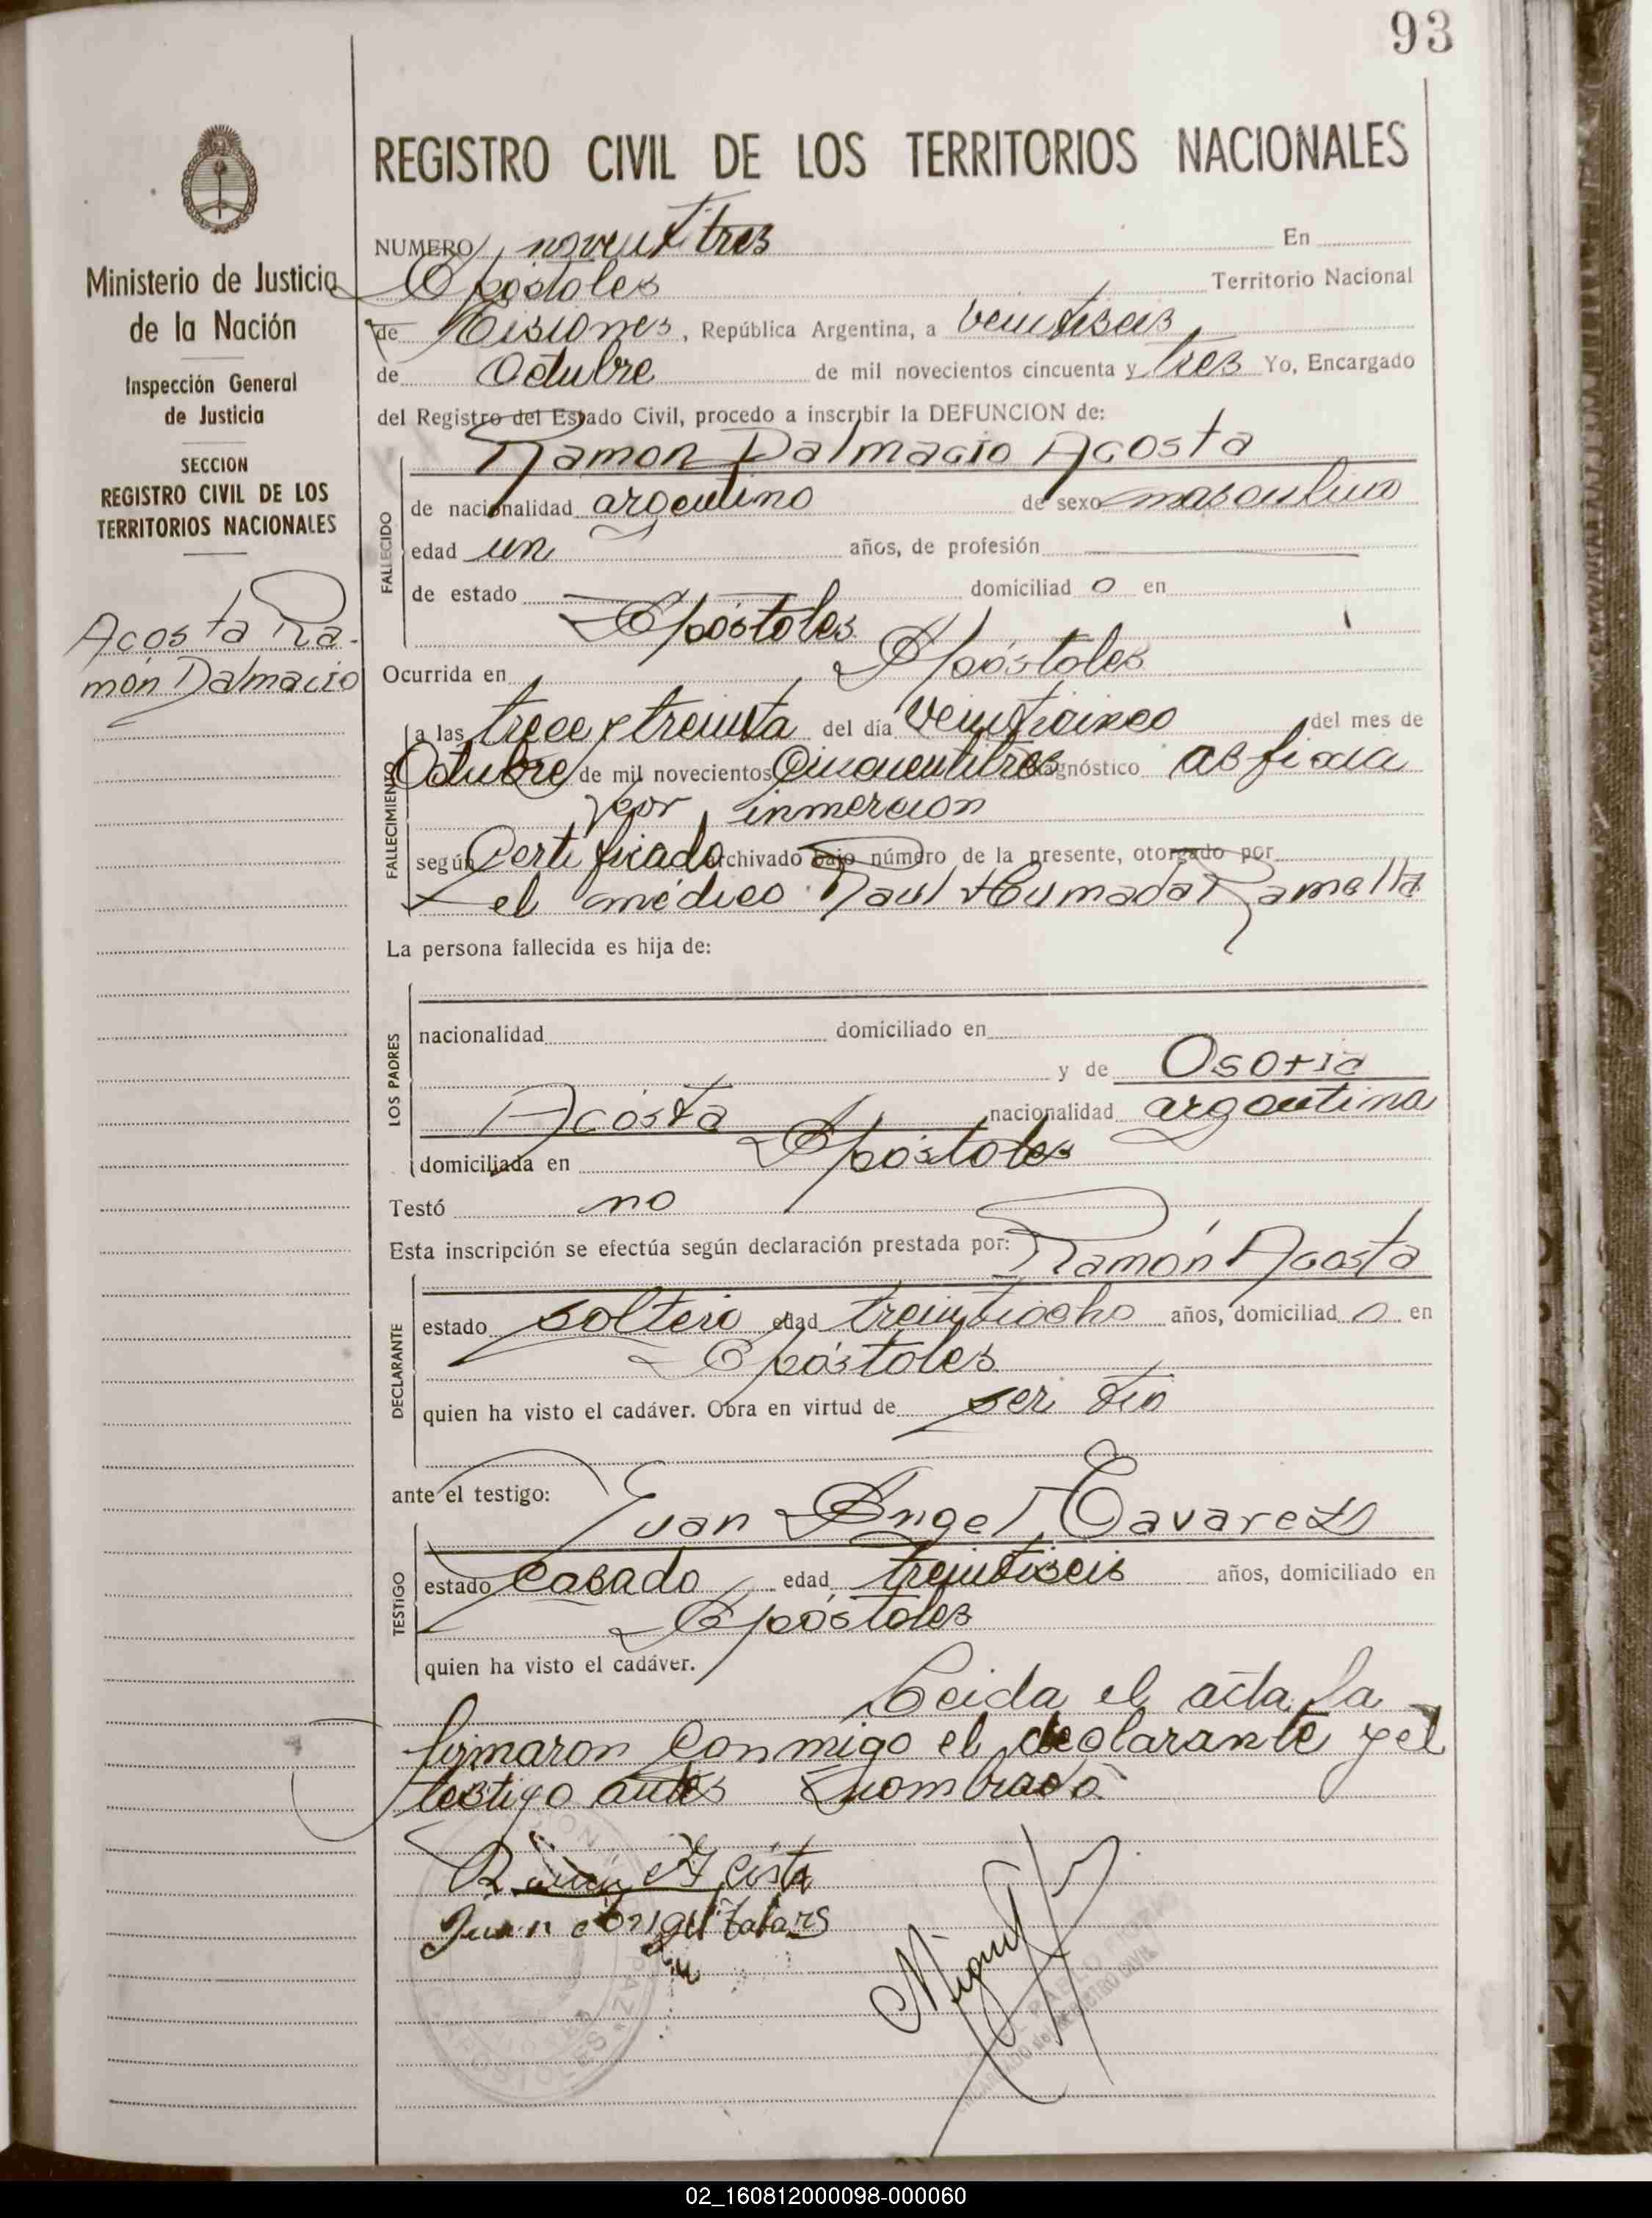 93
REGISTRO CIVIL DE LOS TERRITORIOS NACIONALES
Ministerio de Justicia
de la Nación
Inspección General
de Justicia
SECCION
REGISTRO CIVIL DE LOS
TERRITORIOS NACIONALES
Acosta Ra-
món Dalmacio
NUMERO noventitres En
Apóstoles Territorio Nacional
de Misiones, República Argentina, a veintiseis
de Octubre de mil novecientos cincuenta y tres Yo, Encargado
del Registro del Estado Civil, procedo a inscribir la DEFUNCION de:
Ramon Dalmacio Acosta
FALLECIDO
de nacionalidad argentino de sexo masculino
edad un años, de profesión
de estado domiciliad o en
Apóstoles
Ocurrida en Apóstoles
FALLECIMIENTO
a las trece y treinta del día veinticinco del mes de
Octubre de mil novecientos cincuentitres diagnóstico asfixia
por inmercion
según Certificado archivado bajo número de la presente, otorgado por
el médico Raul Humada Ramella
La persona fallecida es hija de:
LOS PADRES
nacionalidad domiciliado en
y de Osoria
Acosta nacionalidad argentina
domiciliada en Apóstoles
Testó no
Esta inscripción se efectúa según declaración prestada por: Ramón Acosta
DECLARANTE
estado soltero edad treintiocho años, domiciliad o en
Apóstoles
quien ha visto el cadáver. Obra en virtud de ser tio
ante el testigo:
Juan Angel Tavarez
TESTIGO
estado casado edad treintiseis años, domiciliado en
Apóstoles
quien ha visto el cadáver.
Leida el acta, la
firmaron conmigo el declarante y el
testigo antes nombrado.
Ramón Acosta
Juan Angel
Miguel
PABLO
ENCARGADO del REGISTRO CIVIL
02_160812000098-000060